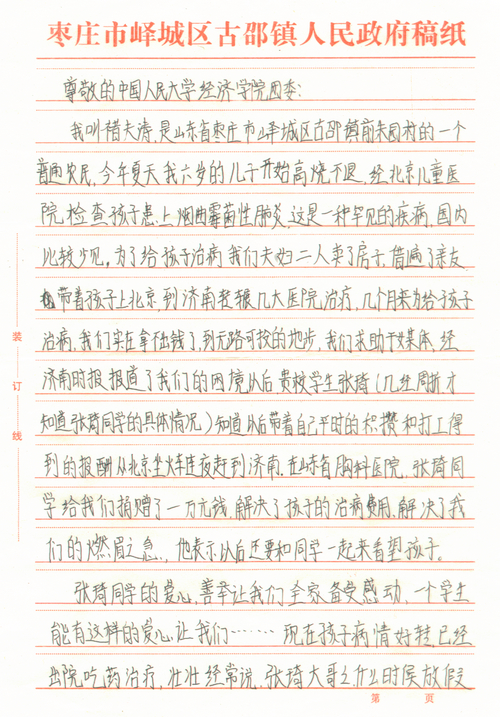 枣庄市峄城区古邵镇人民政府稿纸
尊敬的中国人民大学经济学院团委:
我叫褚夫涛,是山东省枣庄市峄城区古邵镇前朱园村的一个
普通农民,今年夏天我六岁的儿子开始高烧不退,经北京儿童医
院检查孩子患上烟曲霉菌性肺炎,这是一种罕见的疾病,国内
比较少见,为了给孩子治病我们夫妇二人卖了房子,借遍了亲友,
带着孩子上北京,到济南 几大医院治疗,几个月来为给孩子
治病,我们实在拿不出钱了,到无路可投的地步,我们求助于媒体,经
济南时报报道了我们的困境以后,贵校学生张琦(几经周折才
知道张琦同学的具体情况)知道以后带着自己平时的积攒和打工得
到的报酬从北京坐火车连夜赶到济南.在山东省胸科医院,张琦同
学给我们捐赠了一万元钱,解决了孩子的治病费用,解决了我
们的燃眉之急.,他表示以后还要和同学一起来看望孩子。
张琦同学的爱心,善举让我们全家备受感动,一个学生
能有这样的爱心,让我们……… 现在孩子病情好转,已经
出院吃药治疗,壮壮经常说,张琦大哥 什么时侯放假
第 页
装
订
线